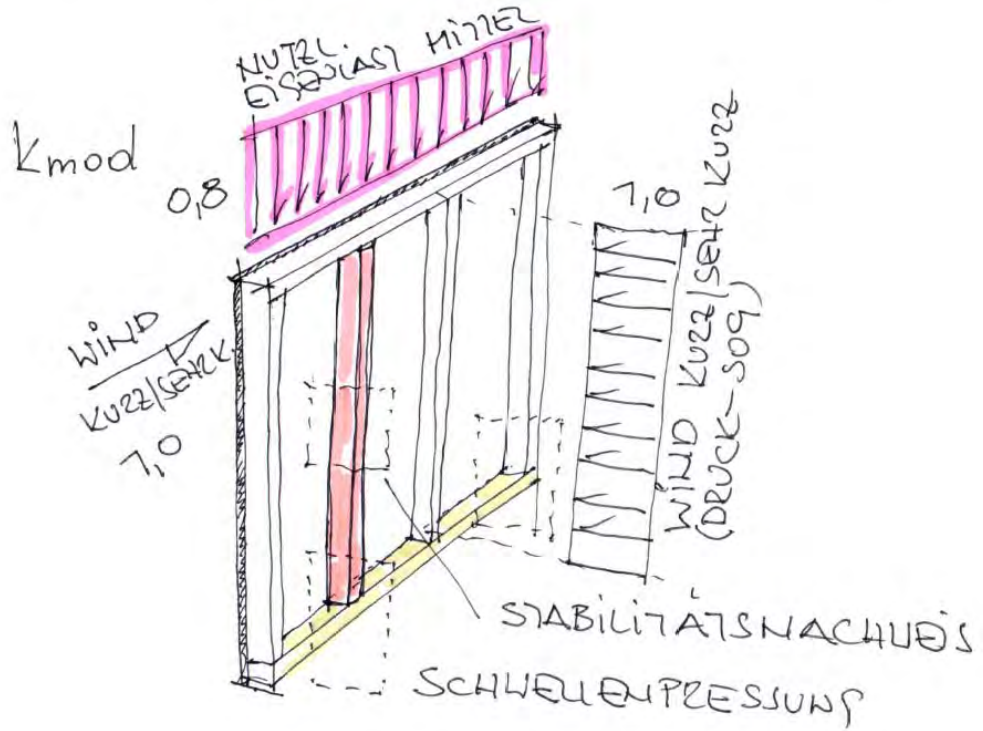 NUTZL. MITTEL
EISENLAST
Kmod
0,8
1,0
WIND
KURZ/SEHR K.
1,0
WIND KURZ/SEHR KURZ
(DRUCK-SOG)
STABILITÄTSNACHWEIS
SCHWELLENPRESSUNG